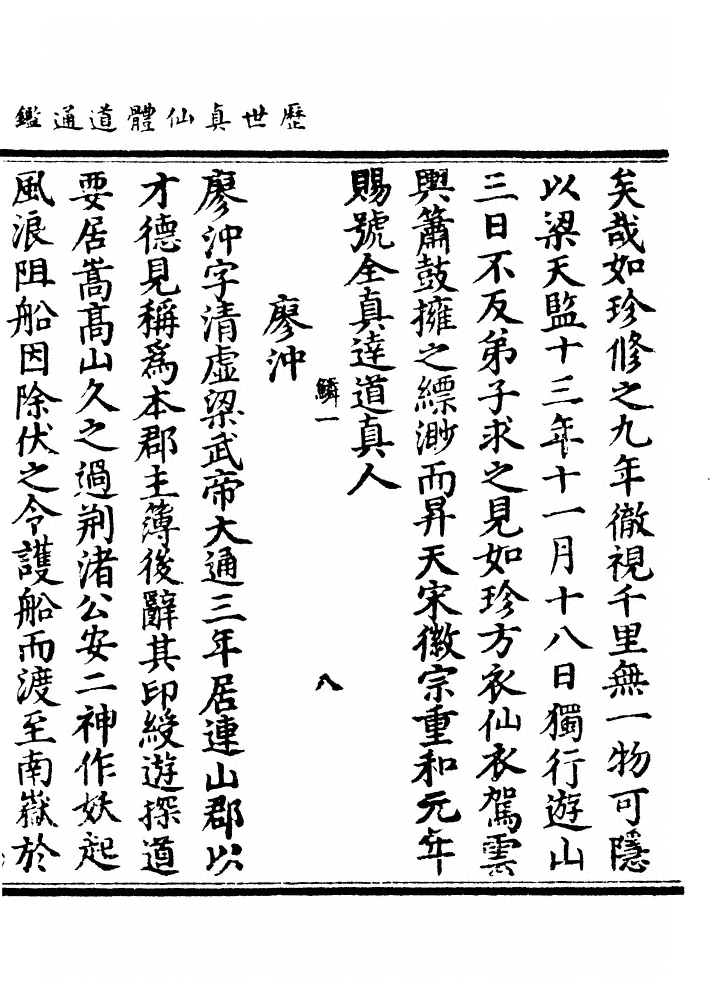 歷世真仙體道通鑑
矣哉如珍修之九年徹視千里無一物可隱
以梁天監十三年十一月十八日獨行遊山
三日不反弟子求之見如珍方衣仙衣駕雲
輿簫鼓擁之縹渺而昇天宋徽宗重和元年
賜號全真達道真人
鱗一
八
廖沖
廖沖字清虛梁武帝大通三年居連山郡以
才德見稱為本郡主簿後辭其印綬遊探道
要居嵩高山久之過荆渚公安二神作妖起
風浪阻船因除伏之令護船而渡至南嶽於